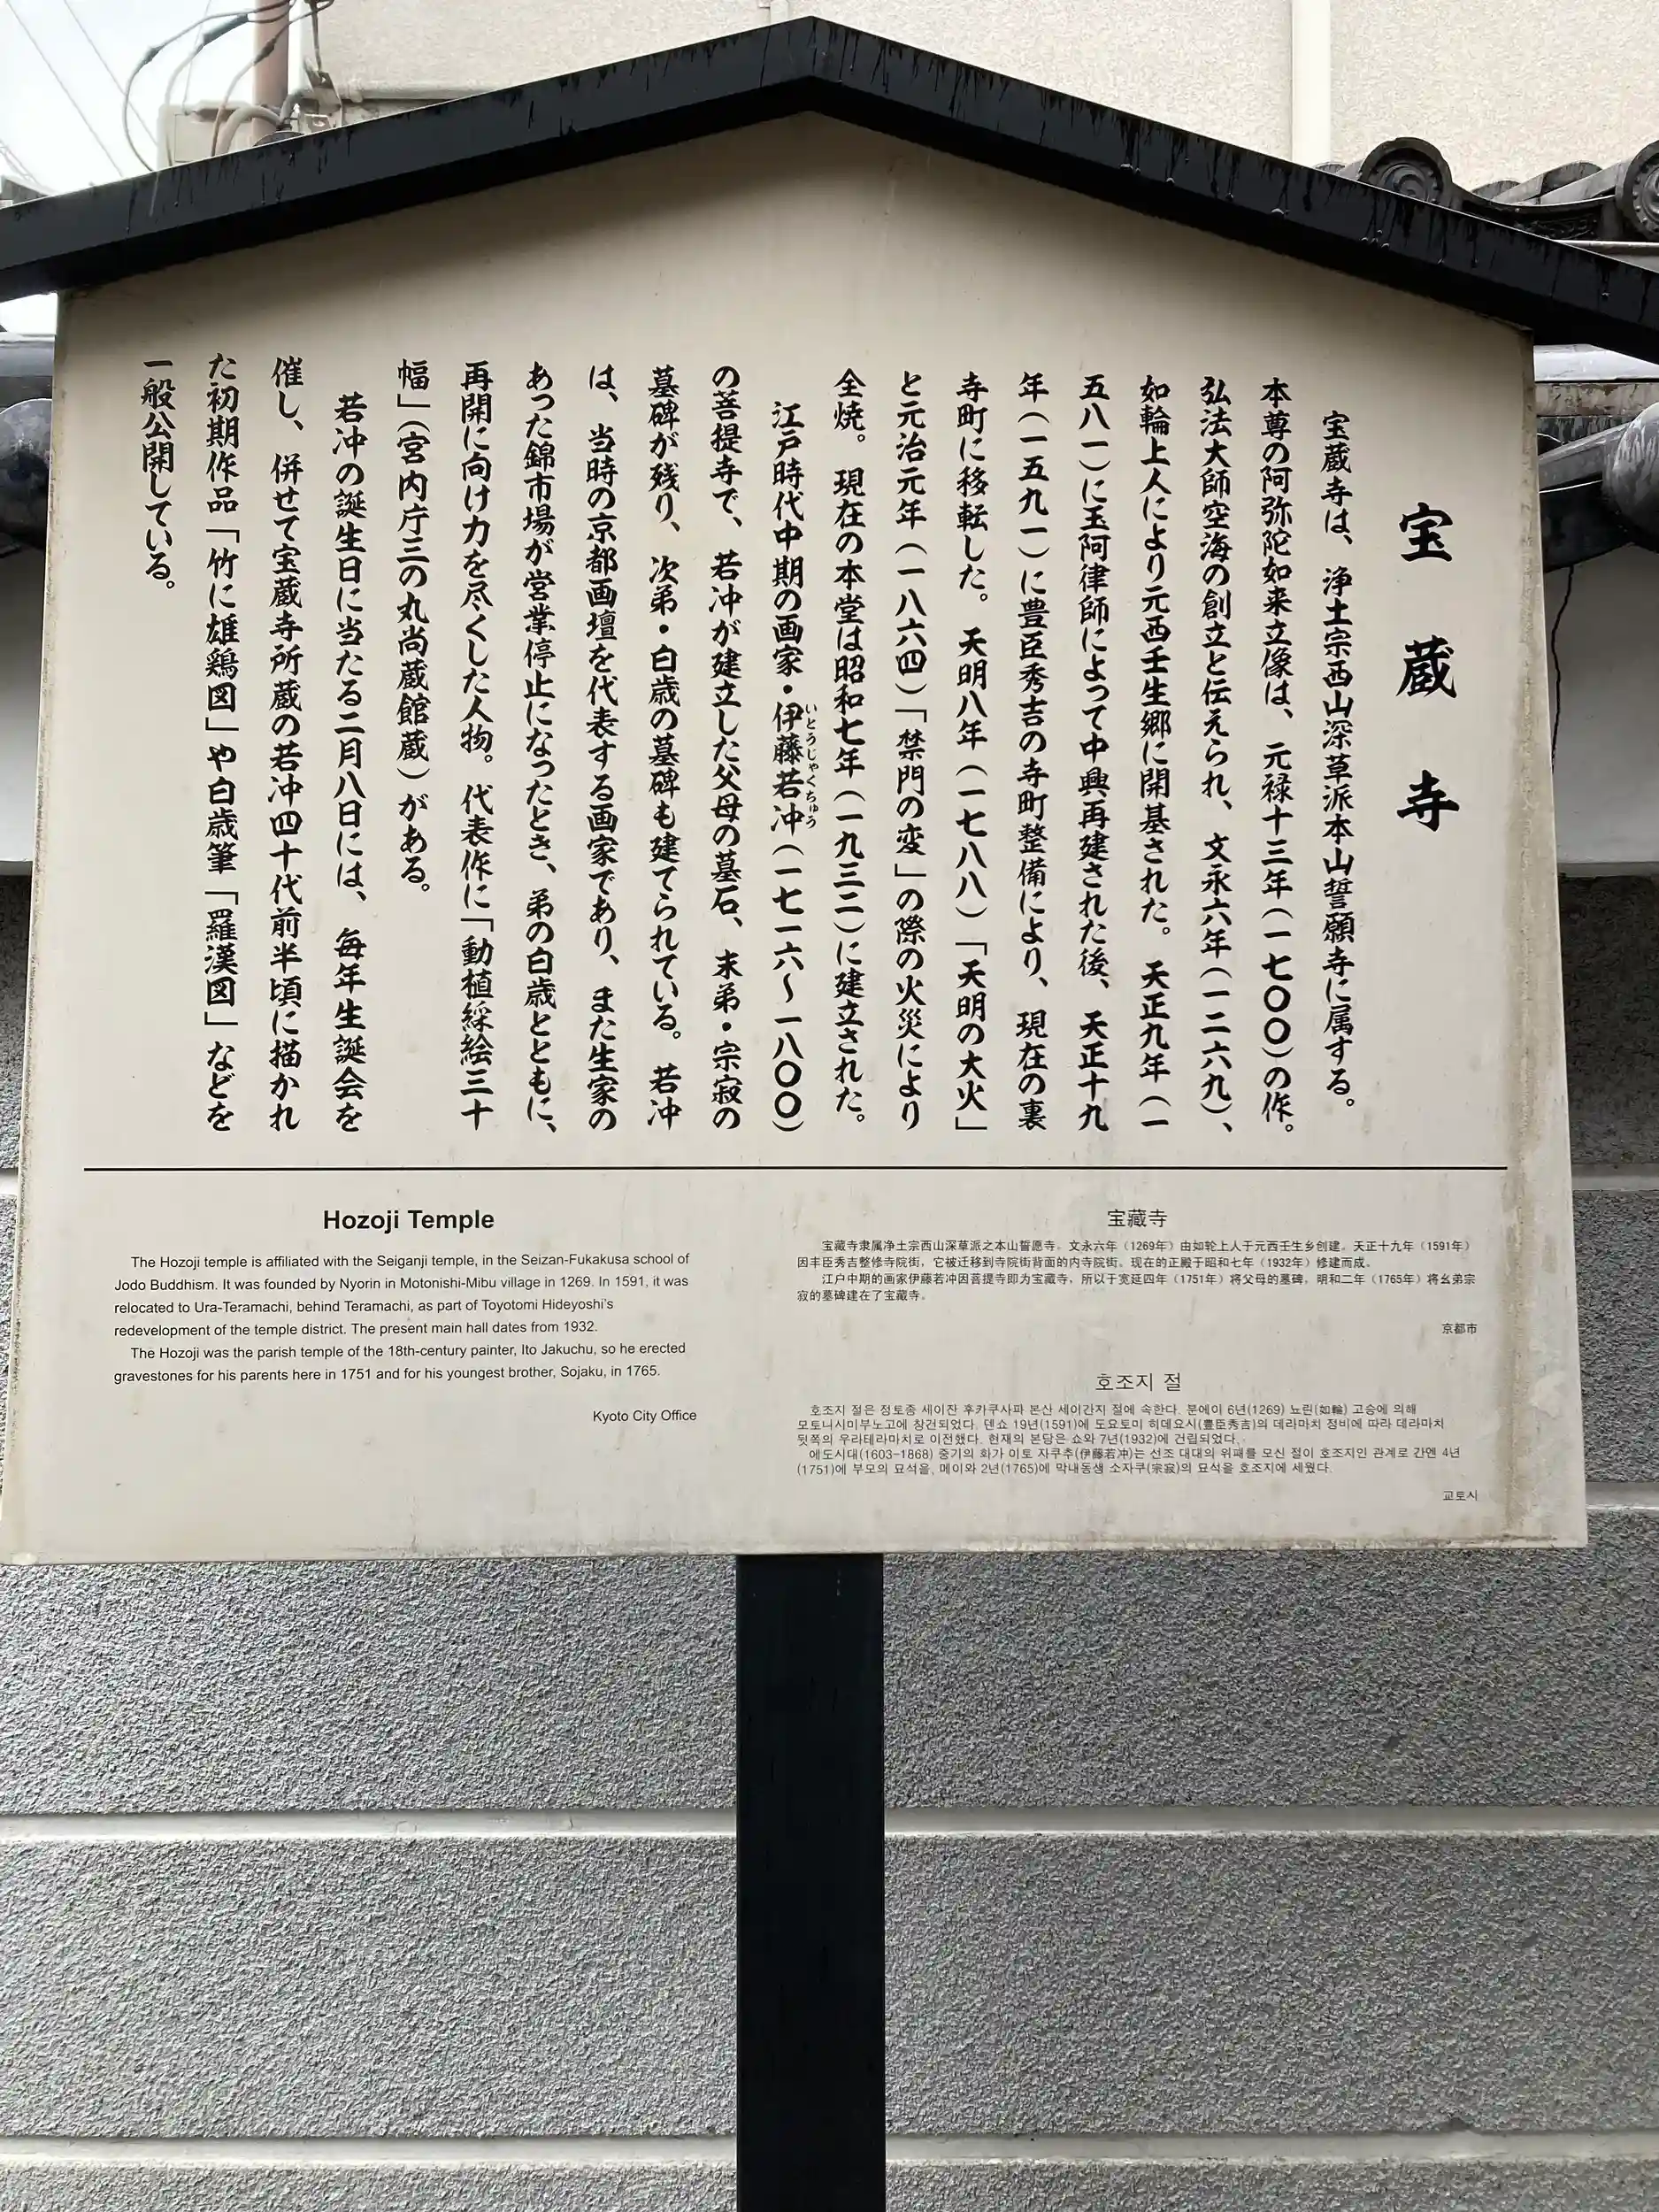 宝蔵寺
宝蔵寺は、浄土宗西山深草派本山誓願寺に属する。
本尊の阿弥陀如来立像は、元禄十三年(一七〇〇)の作。
弘法大師空海の創立と伝えられ、文永六年(一二六九)、
如輪上人により元西壬生郷に開基された。天正九年(一
五八一)に玉阿律師によって中興再建された後、天正十九
年(一五九一)に豊臣秀吉の寺町整備により、現在の裏
寺町に移転した。天明八年(一七八八)「天明の大火」
と元治元年(一八六四)「禁門の変」の際の火災により
全焼。現在の本堂は昭和七年(一九三二)に建立された。
江戸時代中期の画家・伊藤若冲(一七一六～一八〇〇)
いとうじゃくちゅう
の菩提寺で、若冲が建立した父母の墓石、末弟・宗寂の
墓碑が残り、次弟・白歳の墓碑も建てられている。若冲
は、当時の京都画壇を代表する画家であり、また生家の
あった錦市場が営業停止になったとき、弟の白歳とともに、
再開に向け力を尽くした人物。代表作に「動植綵絵三十
幅」(宮内庁三の丸尚蔵館蔵)がある。
若冲の誕生日に当たる二月八日には、毎年生誕会を
催し、併せて宝蔵寺所蔵の若冲四十代前半頃に描かれ
た初期作品「竹に雄鶏図」や白歳筆「羅漢図」などを
一般公開している。
Hozoji Temple
The Hozoji temple is affiliated with the Seiganji temple, in the Seizan-Fukakusa school of
Jodo Buddhism. It was founded by Nyorin in Motonishi-Mibu village in 1269. In 1591, it was
relocated to Ura-Teramachi, behind Teramachi, as part of Toyotomi Hideyoshi's
redevelopment of the temple district. The present main hall dates from 1932.
The Hozoji was the parish temple of the 18th-century painter, Ito Jakuchu, so he erected
gravestones for his parents here in 1751 and for his youngest brother, Sojaku, in 1765.
Kyoto City Office
宝藏寺
宝藏寺隶属净土宗西山深草派之本山誓愿寺。文永六年（1269年）由如轮上人于元西壬生乡创建。天正十九年（1591年）
因丰臣秀吉整修寺院街，它被迁移到寺院街背面的内寺院街。现在的正殿于昭和七年（1932年）修建而成。
江户中期的画家伊藤若冲因菩提寺即为宝藏寺，所以于宽延四年（1751年）将父母的墓碑，明和二年（1765年）将幺弟宗
寂的墓碑建在了宝藏寺。
京都市
호조지 절
호조지 절은 정토종 세이잔 후카쿠사파 본산 세이간지 절에 속한다. 분에이 6년(1269) 뇨린(如輪) 고승에 의해
모토니시미부노고에 창건되었다. 덴쇼 19년(1591)에 도요토미 히데요시(豊臣秀吉)의 데라마치 정비에 따라 데라마치
뒷쪽의 우라테라마치로 이전했다. 현재의 본당은 쇼와 7년(1932)에 건립되었다.
에도시대(1603-1868) 중기의 화가 이토 자쿠추(伊藤若冲)는 선조 대대의 위패를 모신 절이 호조지인 관계로 간엔 4년
(1751)에 부모의 묘석을, 메이와 2년(1765)에 막내동생 소자쿠(宗寂)의 묘석을 호조지에 세웠다.
교토시